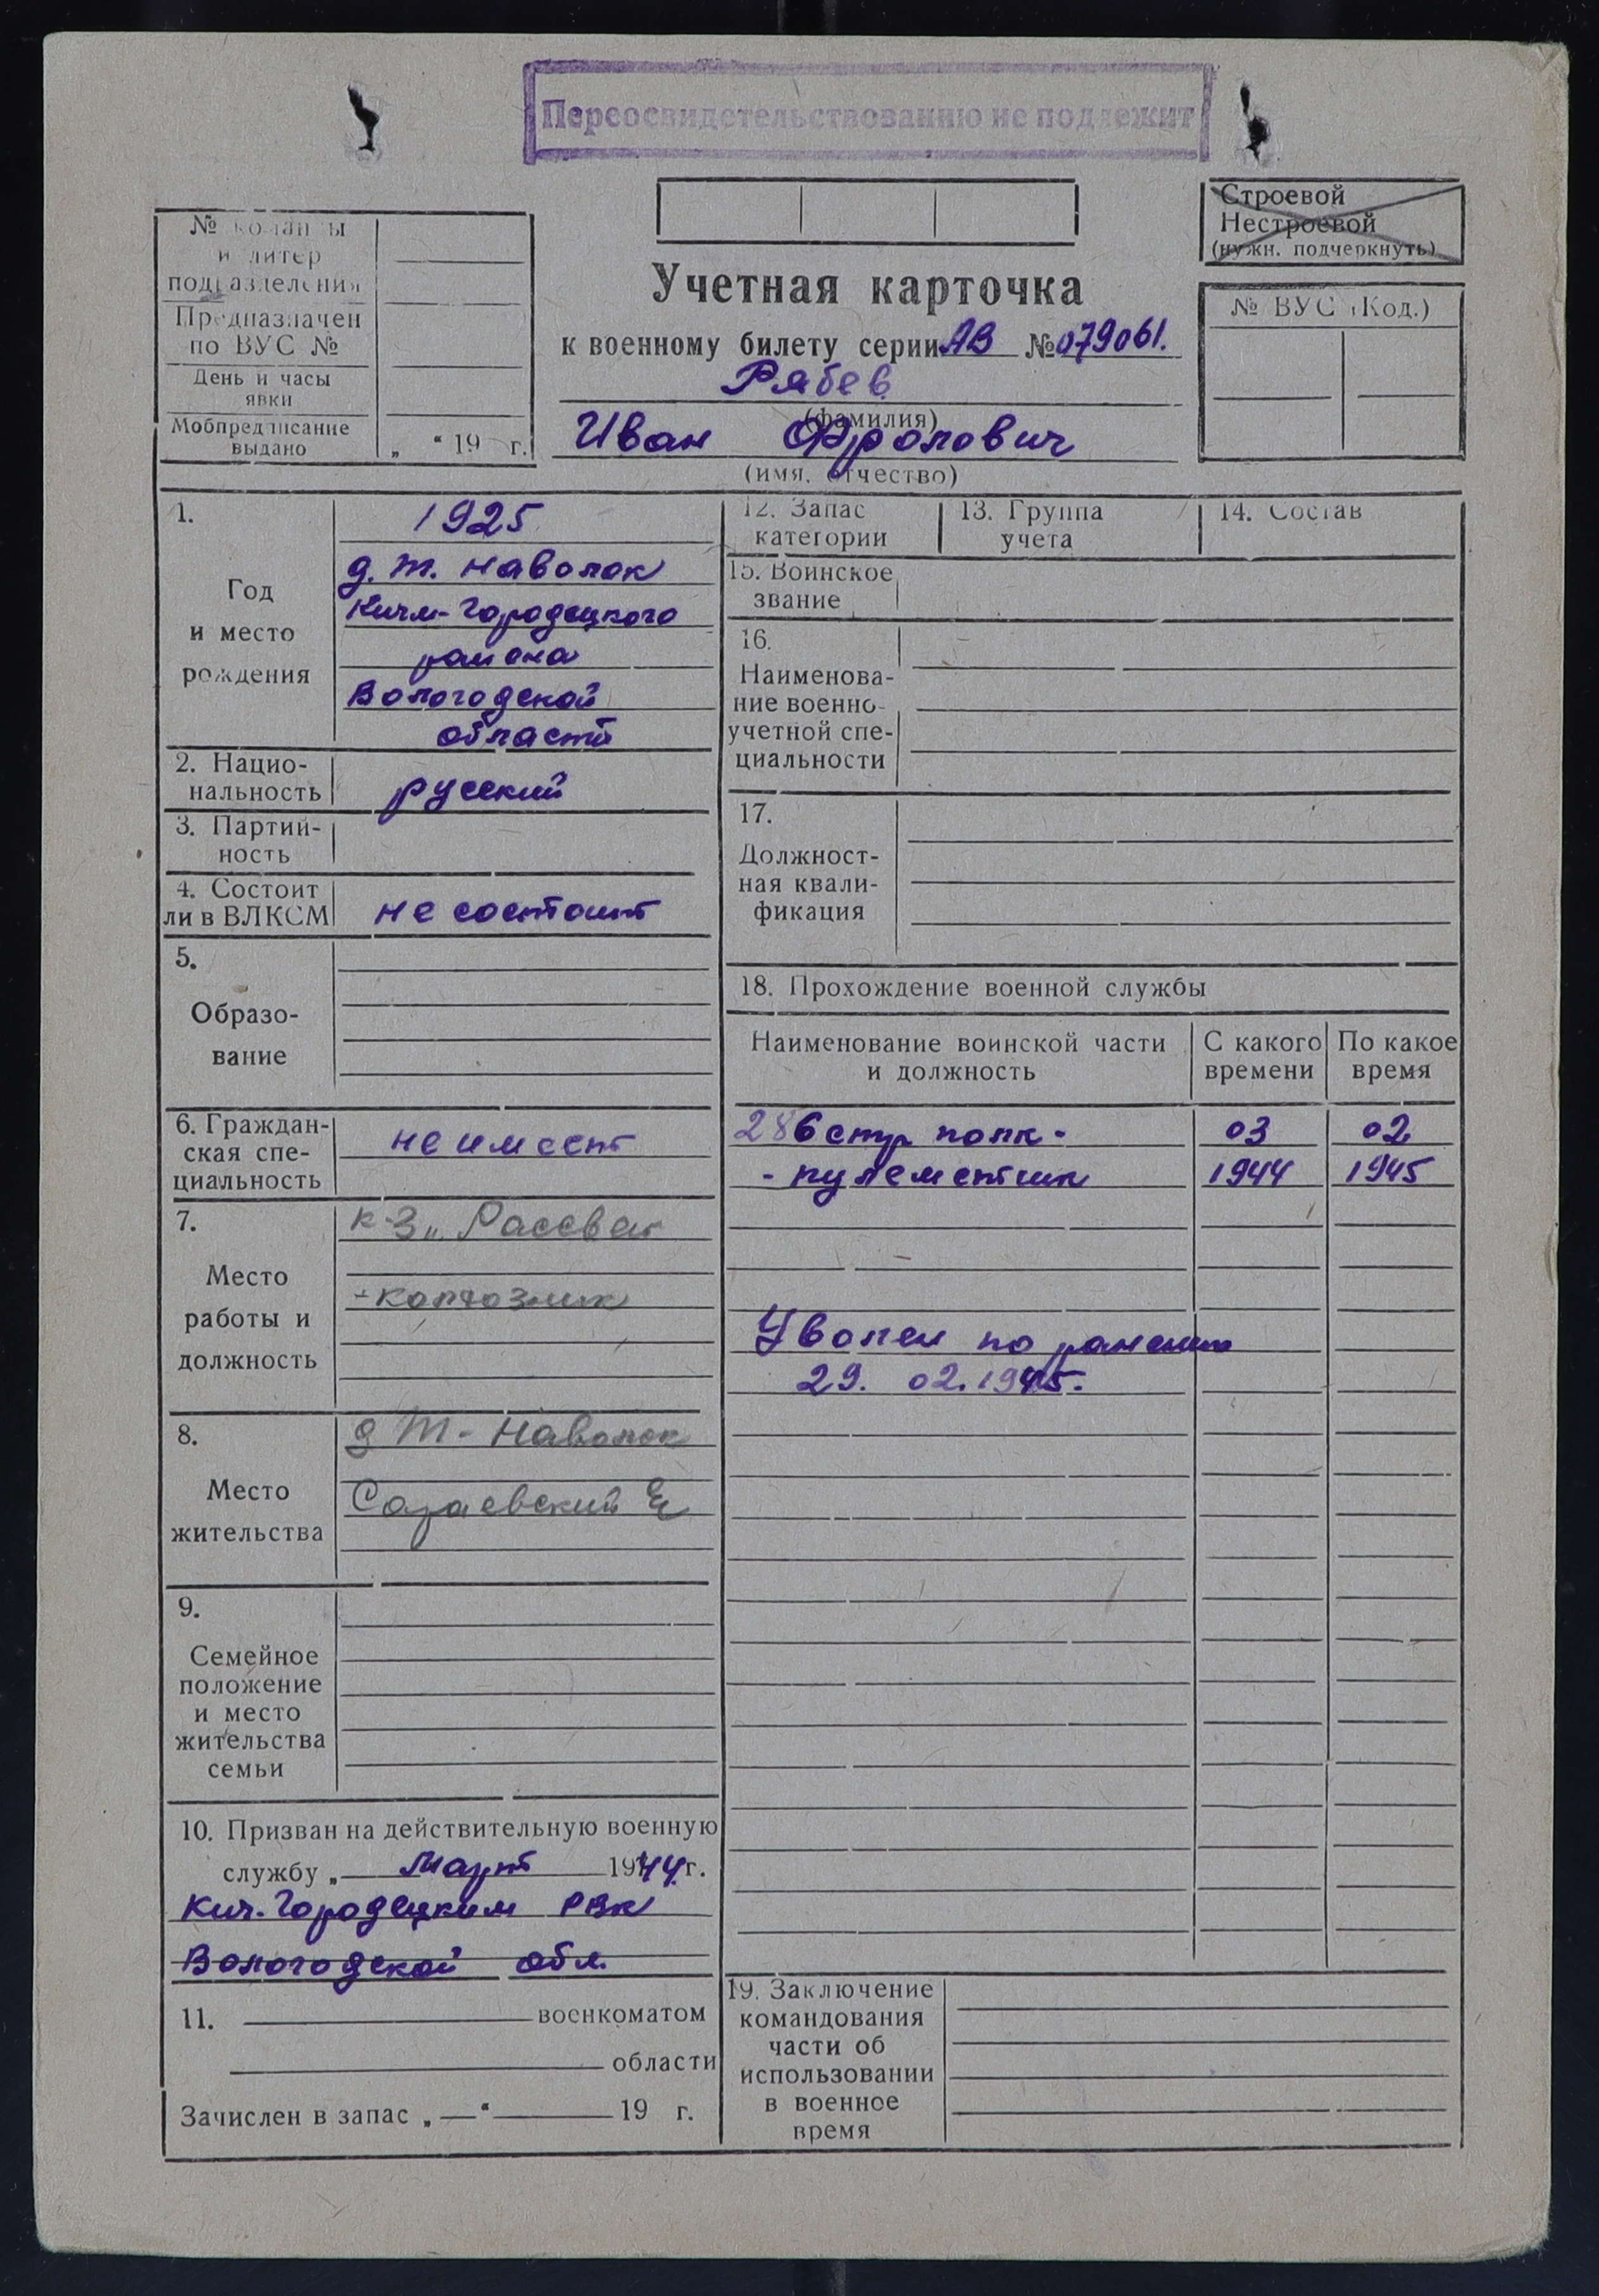 Переосвидетельствованию не подлежит
Строевой
Нестроевой
(нужн. подчеркнуть)
№ команды
и литер
подразделения
Предназначен
по ВУС №
День и часы
явки
Мобпредписание
выдано
„ “ 19 г.
Учетная карточка
к военному билету серии АВ № 079061.
Рябев
(фамилия)
Иван Фролович
(имя, отчество)
№ ВУС (Код.)
1.
Год
и место
рождения
1925
д. Т. Наволок
Кичм-Городецкого
района
Вологодской
области
2. Нацио-
нальность
русский
3. Партий-
ность
4. Состоит
ли в ВЛКСМ
не состоит
5.
Образо-
вание
6. Граждан-
ская спе-
циальность
не имеет
7.
Место
работы и
должность
к-з „Рассвет
-колхозник
8.
Место
жительства
д Т-Наволок
Сараевский
9.
Семейное
положение
и место
жительства
семьи
10. Призван на действительную военную
службу „ Март 1944 г.
Кич.Городецким РВК
Вологодской обл.
11. военкоматом
области
Зачислен в запас „—“ 19 г.
12. Запас
категории
13. Группа
учета
14. Состав
15. Воинское
звание
16.
Наименова-
ние военно-
учетной спе-
циальности
17.
Должност-
ная квали-
фикация
18. Прохождение военной службы
Наименование воинской части
и должность
С какого
времени
По какое
время
286 стр полк - 03 02
- пулеметчик 1944 1945
Уволен по ранению
29. 02. 1945.
19. Заключение
командования
части об
использовании
в военное
время